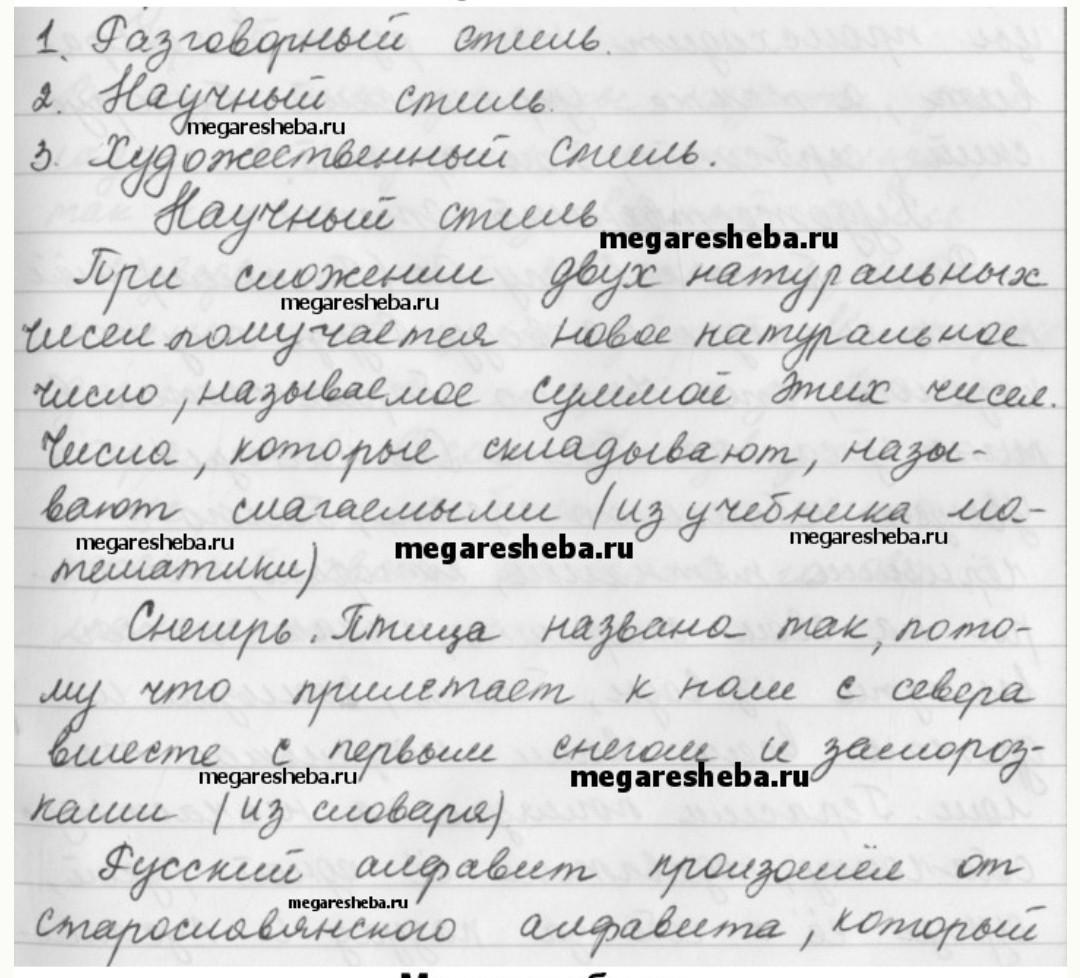 1. Разговорный стиль.
2. Научный стиль.
megaresheba.ru
3. Художественный стиль.
Научный стиль
megaresheba.ru
При сложении двух натуральных
megaresheba.ru
чисел получается новое натуральное
число, называемое суммой этих чисел.
Числа, которые складывают, назы-
вают слагаемыми (из учебника ма-
megaresheba.ru megaresheba.ru megaresheba.ru
тематики)
Снегирь. Птица названа так, пото-
му что прилетает к нам с севера
вместе с первым снегом и замороз-
megaresheba.ru megaresheba.ru
ками (из словаря)
Русский алфавит произошёл от
megaresheba.ru
старославянского алфавита, который